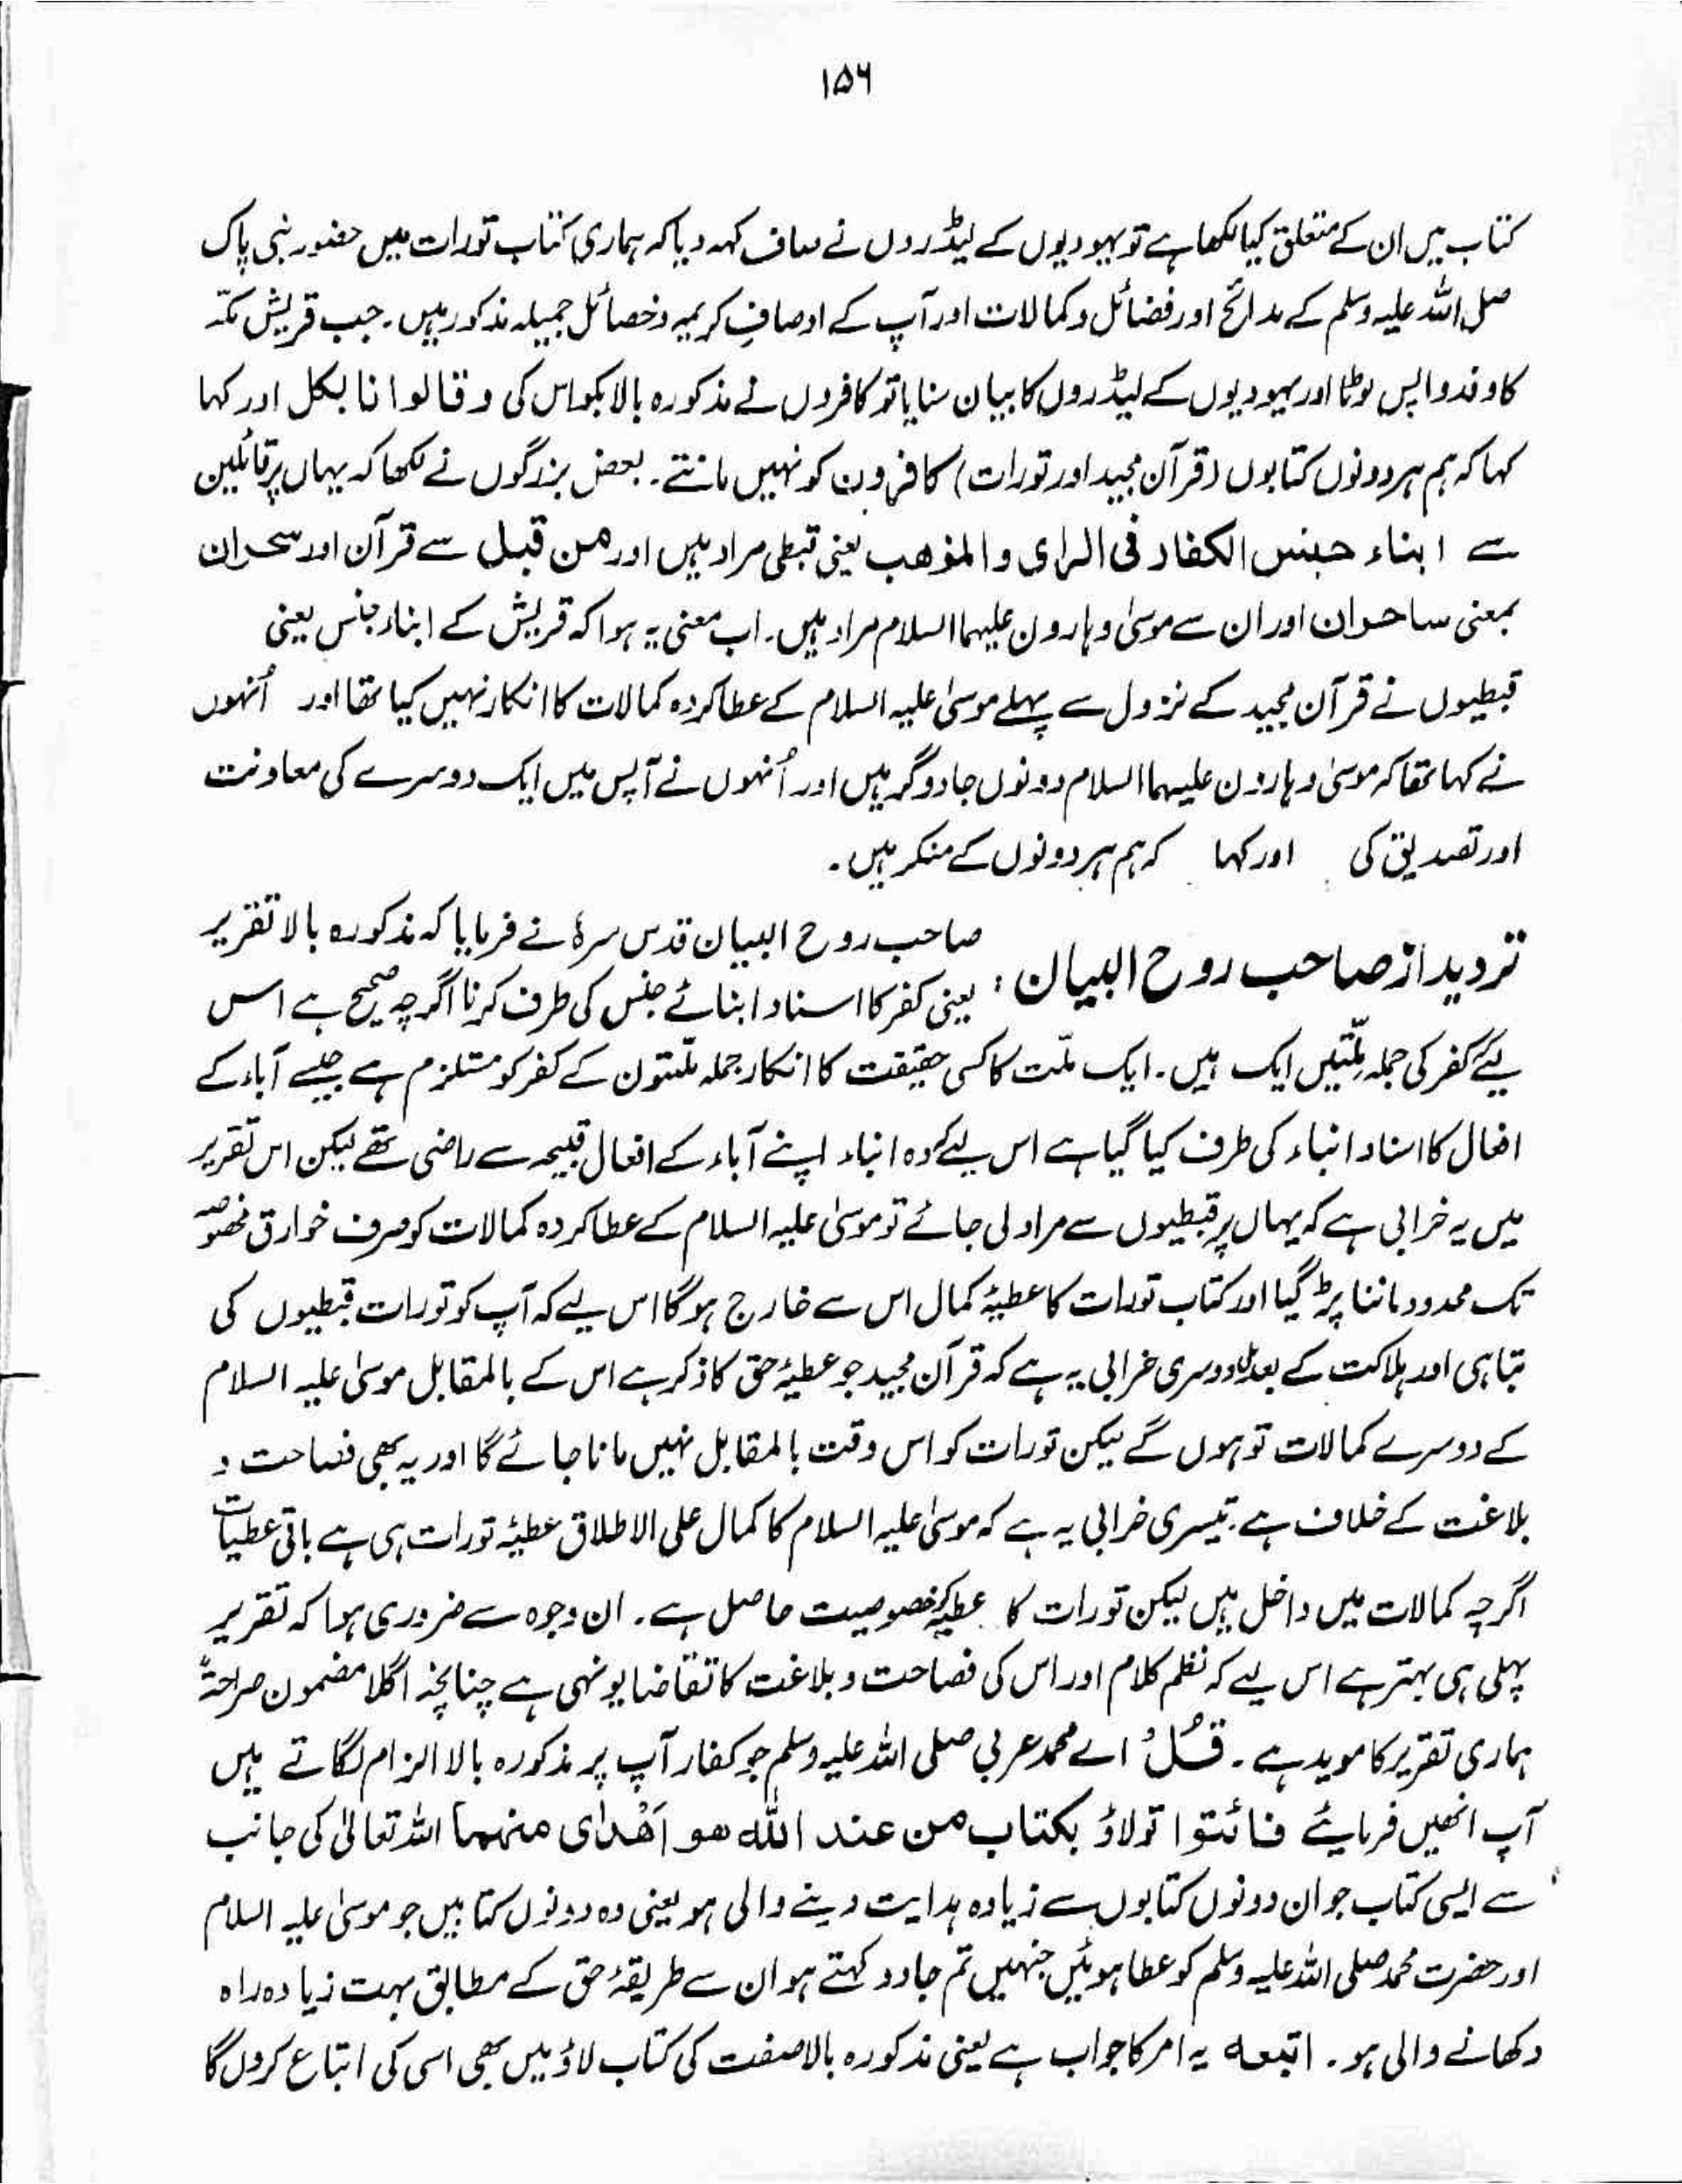 ۱۵۶
کتاب میں ان کے متعلق کیا لکھا ہے تو یہودیوں کے لیڈروں نے صاف کہہ دیا کہ ہماری کتاب تورات میں حضور نبی پاک
صلی اللہ علیہ وسلم کے مدائح اور فضائل وکمالات اور آپ کے اوصافِ کریمہ وخصائل جمیلہ مذکور ہیں۔ جب قریش مکّہ
کا وفد واپس لوٹا اور یہودیوں کے لیڈروں کا بیان سنایا تو کافروں نے مذکورہ بالا بکواس کی وقالوا انا بکل اور کہا
کہا کہ ہم ہر دونوں کتابوں (قرآن مجید اور تورات) کافرون کو نہیں مانتے۔ بعض بزرگوں نے لکھا کہ یہاں پر قائلین
سے ابناء جنس الکفار فی الرای والمذھب یعنی قبطی مراد ہیں اور من قبل سے قرآن اور سحران
بمعنی ساحران اور ان سے موسیٰ وہارون علیہما السلام مراد ہیں۔ اب معنی یہ ہوا کہ قریش کے ابناء جنس یعنی
قبطیوں نے قرآن مجید کے نزول سے پہلے موسیٰ علیہ السلام کے عطا کردہ کمالات کا انکار نہیں کیا تھا اور اُنہوں
نے کہا تھا کہ موسیٰ وہارون علیہما السلام دونوں جادوگر ہیں اور اُنہوں نے آپس میں ایک دوسرے کی معاونت
اور تصدیق کی اور کہا کہ ہم ہر دونوں کے منکر ہیں۔
تردید از صاحب روح البیان : صاحب روح البیان قدس سرہٗ نے فرمایا کہ مذکورہ بالا تقریر
یعنی کفر کا اسناد ابنائے جنس کی طرف کرنا اگرچہ صحیح ہے اس
لیے کفر کی جملہ مِلّتیں ایک ہیں۔ ایک ملّت کا کسی حقیقت کا انکار جملہ ملّتوں کے کفر کو مستلزم ہے جیسے آباء کے
افعال کا اسناد ابناء کی طرف کیا گیا ہے اس لیے کہ وہ ابناء اپنے آباء کے افعال قبیحہ سے راضی تھے لیکن اس تقریر
میں یہ خرابی ہے کہ یہاں پر قبطیوں سے مراد لی جائے تو موسیٰ علیہ السلام کے عطا کردہ کمالات کو صرف خوارق مخصوصہ
تک محدود ماننا پڑ گیا اور کتاب تورات کا عطیۂ کمال اس سے خارج ہو گا اس لیے کہ آپ کو تورات قبطیوں کی
تباہی اور ہلاکت کے بعد ملا دوسری خرابی یہ ہے کہ قرآن مجید جو عطیۂ حق کا ذکر ہے اس کے بالمقابل موسیٰ علیہ السلام
کے دوسرے کمالات تو ہوں گے لیکن تورات کو اس وقت بالمقابل نہیں مانا جائے گا اور یہ بھی فصاحت و
بلاغت کے خلاف ہے۔ تیسری خرابی یہ ہے کہ موسیٰ علیہ السلام کا کمال علی الاطلاق عطیۂ تورات ہی ہے باقی عطیات
اگرچہ کمالات میں داخل ہیں لیکن تورات کا عطیہ خصوصیت حاصل ہے۔ ان وجوہ سے ضروری ہوا کہ تقریر
پہلی ہی بہتر ہے اس لیے کہ نظم کلام اور اس کی فصاحت وبلاغت کا تقاضا یونہی ہے چنانچہ اگلا مضمون صراحۃً
ہماری تقریر کا موید ہے۔ قُلْ اے محمد عربی صلی اللہ علیہ وسلم جو کفار آپ پر مذکورہ بالا الزام لگاتے ہیں
آپ انھیں فرمایئے فائتوا تو لاؤ بکتاب من عند اللہ ھو اَھْدٰی منہما اللہ تعالیٰ کی جانب
سے ایسی کتاب جو ان دونوں کتابوں سے زیادہ ہدایت دینے والی ہو یعنی وہ دونوں کتابیں جو موسیٰ علیہ السلام
اور حضرت محمد صلی اللہ علیہ وسلم کو عطا ہوئیں جنہیں تم جادو کہتے ہو ان سے طریقۂ حق کے مطابق بہت زیادہ راہ
دکھانے والی ہو۔ اتبعہ یہ امر کا جواب ہے یعنی مذکورہ بالا صفت کی کتاب لاؤ میں بھی اسی کی اتباع کروں گا